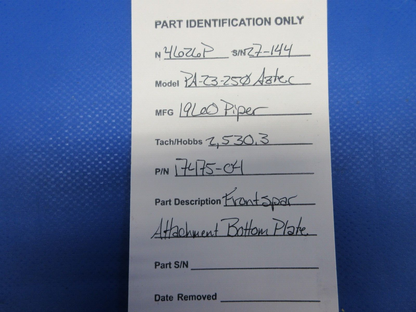 PART IDENTIFICATION ONLY
N 4626P S/N 27-144
Model PA-23-250 Aztec
MFG 1960 Piper
Tach/Hobbs 2,530.3
P/N 17475-04
Part Description Front spar
Attachment Bottom Plate
Part S/N
Date Removed